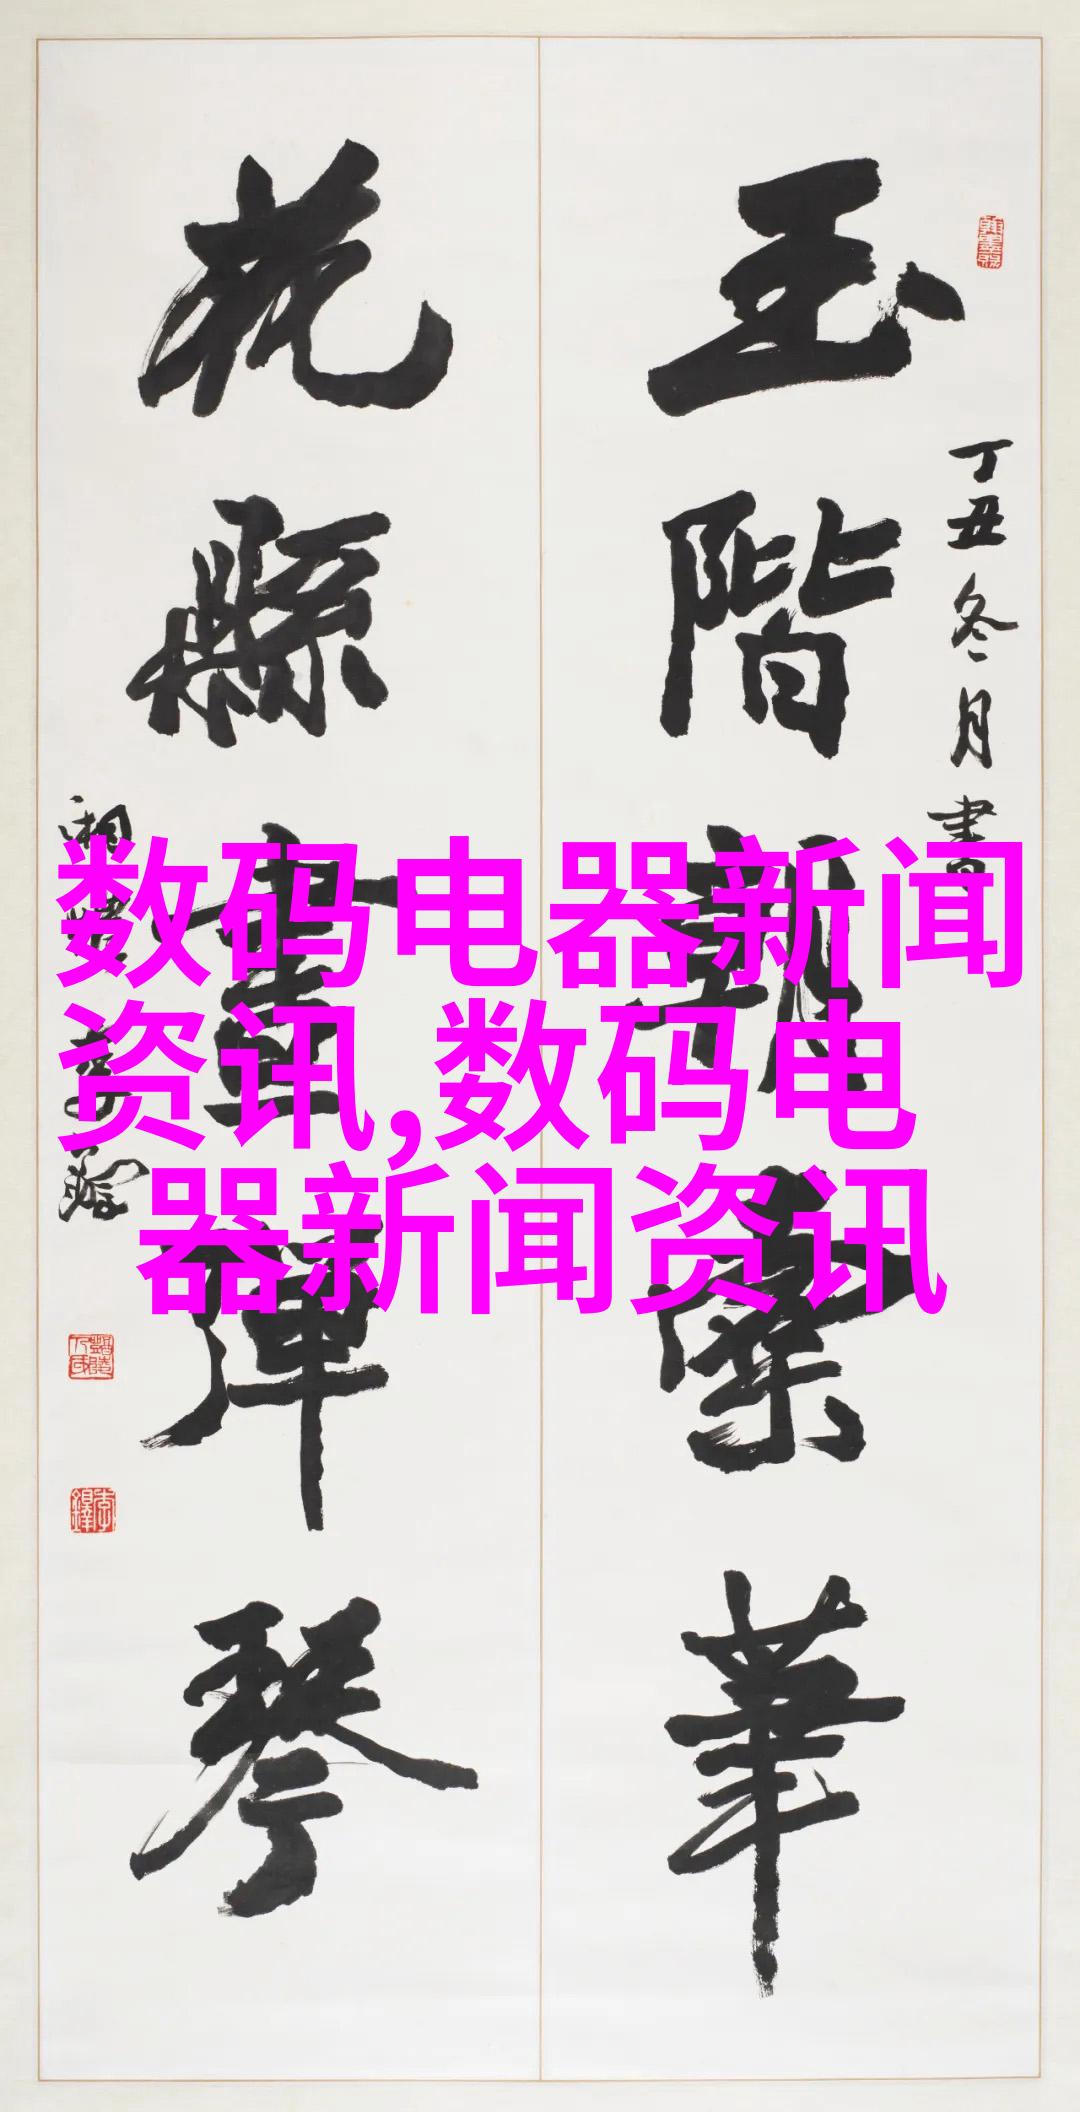 丁丑冬月書
玉階朝華
花縣彈琴
数码电器新闻
资讯,数码电
器新闻资讯